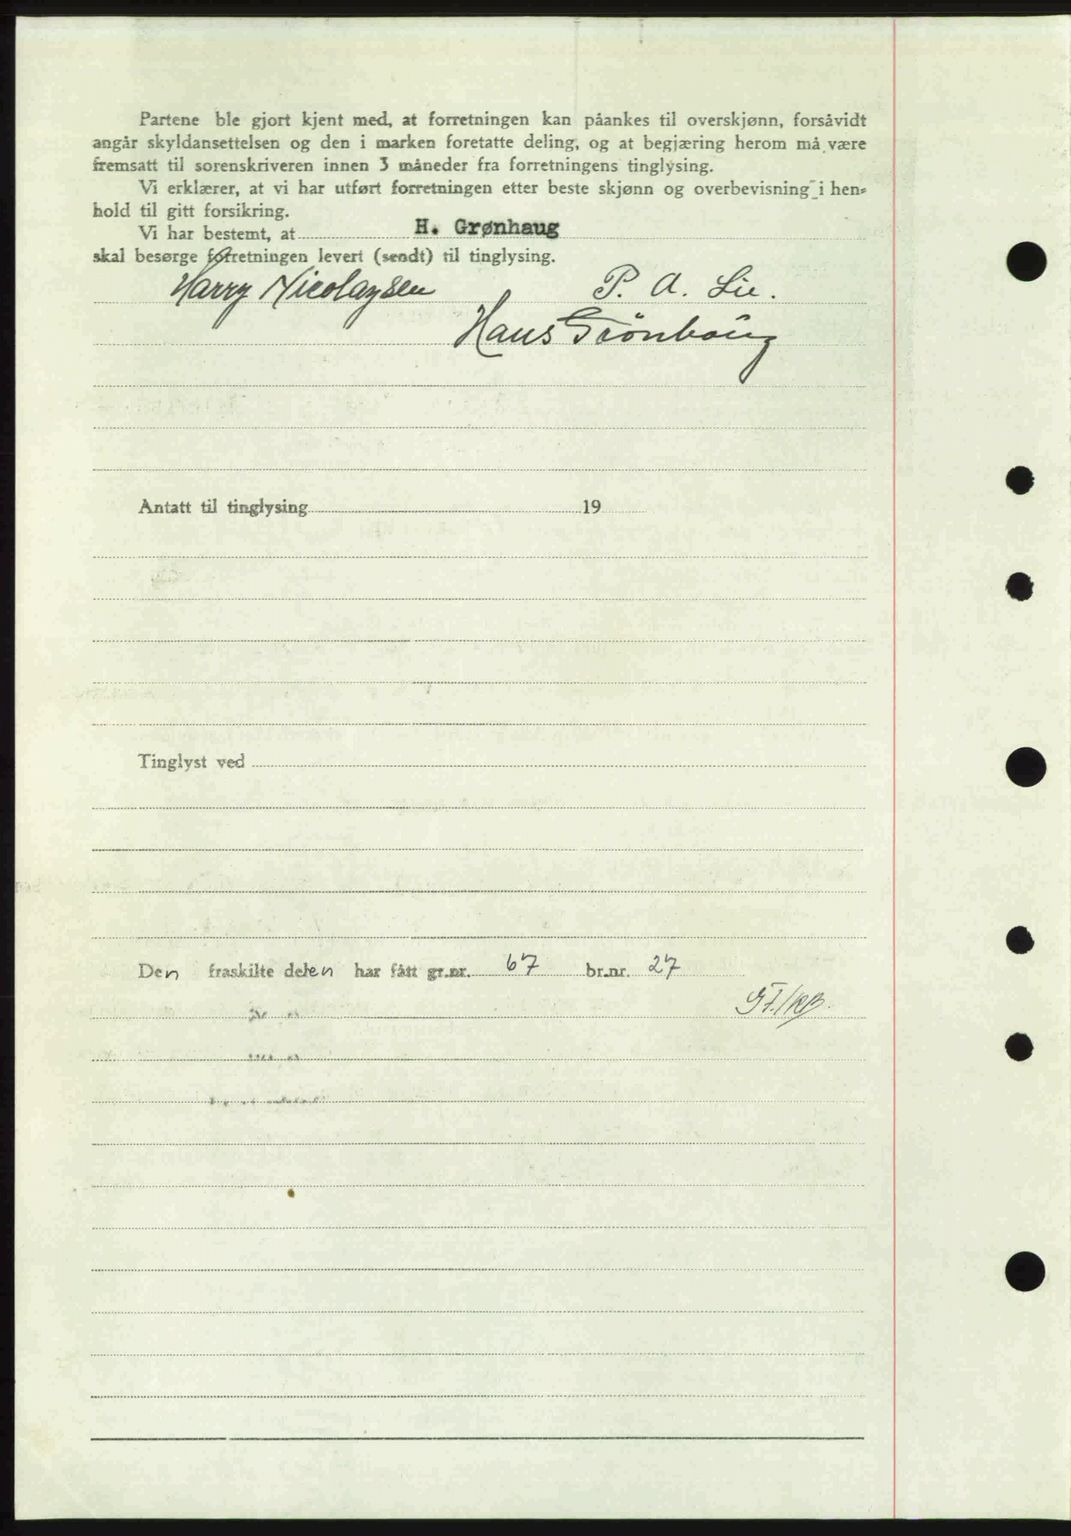 Partene ble gjort kjent med, at forretningen kan påankes til overskjønn, forsåvidt
angår skyldansettelsen og den i marken foretatte deling, og at begjæring herom må være
fremsatt til sorenskriveren innen 3 måneder fra forretningens tinglysing.
Vi erklærer, at vi har utført forretningen etter beste skjønn og overbevisning i hen-
hold til gitt forsikring.
Vi har bestemt, at H. Grønhaug
skal besørge forretningen levert (sendt) til tinglysing.
Harry Nicolaysen P. A. Lie.
Hans Grönhaug
Antatt til tinglysing 19
Tinglyst ved
Den fraskilte delen har fått gr.nr. 67 br.nr. 27